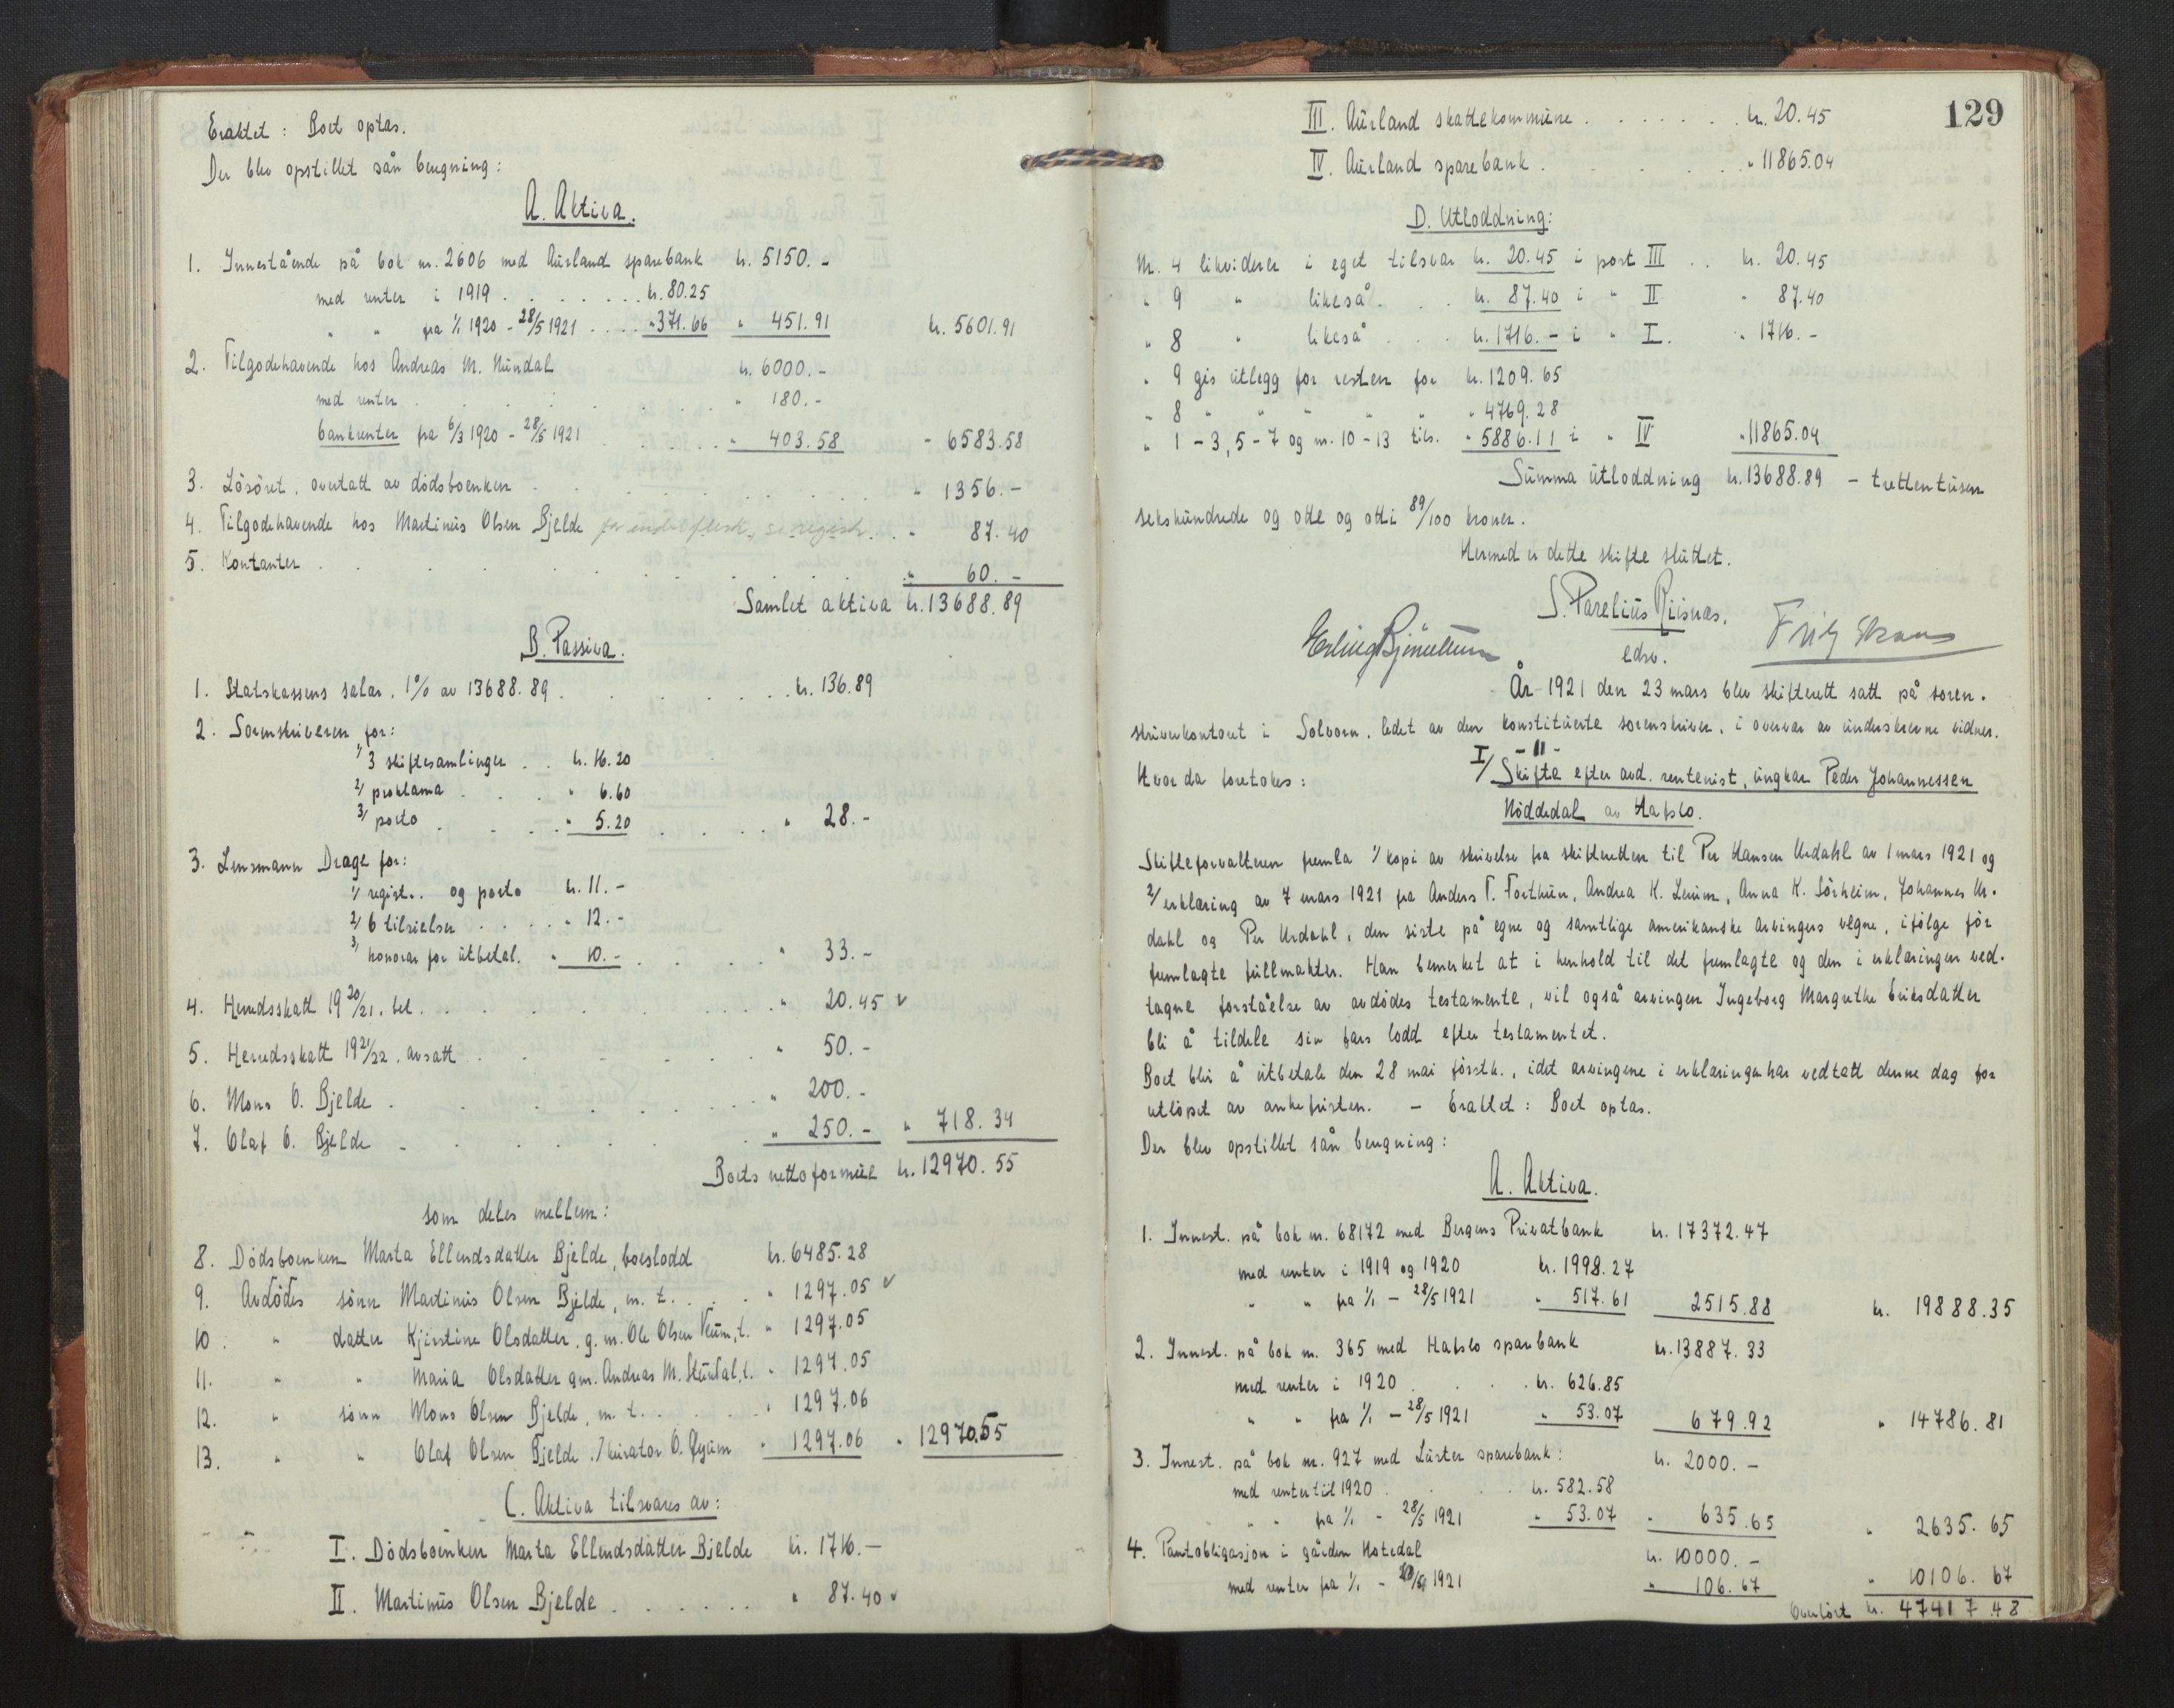 Eraktet: Boet optas.
Der blev opstillet sån beregning:
A. Aktiva.
1. Innestående på bok nr. 2606 med Aurland sparebank kr. 5150.-
med renter i 1919 . . . . . . . kr. 80.25
" " fra 1/1 1920 - 28/5 1921 . . . . " 371.66 " 451.91 kr. 5601.91
2. Tilgodehavende hos Andreas M. Nundal kr. 6000.-
med renter . . . . . . . " 180.-
bankrenter fra 6/3 1920 - 28/5 1921 . . . . . " 403.58 - 6583.58
3. Lösöret, overtatt av dödsboenken . . . . . . . . " 1356.-
4. Tilgodehavende hos Martinus Olsen Bjelde for endel flesk, se registr. . . " 87.40
5. Kontanter . . . . . . . . . . " 60.-
Samlet aktiva kr. 13688.89
B. Passiva.
1. Statskassens salar, 1% av 13688.89 . . . . . . . kr. 136.89
2. Sorenskriveren for:
1/ 3 skiftesamlinger . . kr. 16.20
2/ proklama . . . . " 6.60
3/ porto . . . . " 5.20 . . . . " 28.-
3. Lensmann Drage for:
1/ regist.. og porto kr. 11.-
2/ 6 tilsielser . . . . . " 12.-
3/ honorar for utbetal. " 10.- . . . . " 33.-
4. Herredsskatt 19 20/21, bet. . . . . . . . . " 20.45 v
5. Herredsskatt 19 21/22, avsatt . . . . . . . " 50.-
6. Mons O. Bjelde . . . . . . . . . " 200.-
7. Olaf O. Bjelde . . . . . . . . " 250.- " 718.34
Boets nettoformue kr. 12970.55
som deles mellem:
8. Dödsboenken Marta Ellendsdatter Bjelde, boeslodd kr. 6485.28
9. Avdödes sönn Martinus Olsen Bjelde, m. t. . . . " 1297.05 v
10. " datter Kjerstine Olsdatter, g. m. Ole Olsen Veum, t. " 1297.05
11. " " Maria Olsdatter gm. Andreas M. Stundal, t. " 1297.05
12. " sönn Mons Olsen Bjelde, m. t. . . . . . . " 1297.06
13. " " Olaf Olsen Bjelde ./ kurator O. Ryum " 1297.06 " 12970.55
C. Aktiva tilsvares av:
I. Dödsboenken Marta Ellendsdatter Bjelde kr. 1716.-
II. Martinus Olsen Bjelde . . . . . . . " 87.40 v
129
III. Aurland skattekommune . . . . . . . kr. 20.45
IV. Aurland sparebank . . . . . . . . " 11865.04
D. Utloddning:
Nr. 4 likviderer i eget tilsvar kr. 20.45 i post III . . kr. 20.45
" 9 " likeså . . . kr. 87.40 i " II " 87.40
" 8 " likeså . . . kr. 1716.- i " I. " 1716.-
" 9 gis utlegg for resten for kr. 1209.65
" 8 " " " " " " 4769.28
" 1 - 3, 5 - 7 og nr. 10 - 13 tils. " 5886.11 i " IV " 11865.04
Summa utloddning kr. 13688.89 - trettentusen
sekshundrede og otte og otti 89/100 kroner.
Hermed er dette skifte sluttet.
S. Parelius Riisnæs,
edsv.
År 1921 den 23 mars blev skifterett satt på soren-
skriverkontoret i Solvorn, ledet av den konstituerte sorenskriver, i overvær av underskrevne vidner.
- " -
Hvor da foretokes: I/ Skifte efter avd. rentenist, ungkar Peder Johannessen
Höddedal av Hafslo.
Skifteforvalteren fremla 1/ kopi av skrivelse fra skifteretten til Per Hansen Urdahl av 1 mars 1921 og
2/ erklæring av 7 mars 1921 fra Anders T. Forthun, Andrea K. Leium, Anna K. Sörheim, Johannes Ur-
dahl og Per Urdahl, den siste på egne og samtlige amerikanske arvingers vegne, ifölge för
fremlagte fullmakter. Han bemerket at i henhold til det fremlagte og den i erklæringen ved-
tagne forståelse av avdödes testamente, vil også arvingen Ingeborg Margrethe Eriksdatter
bli å tildele sin fars lodd efter testamentet.
Boet blir å utbetale den 28 mai förstk., idet arvingene i erklæringen har vedtatt denne dag for
utlöpet av ankefristen. - Eraktet: Boet optas.
Der blev opstillet sån beregning:
A. Aktiva.
1. Innest. på bok nr. 68172 med Bergens Privatbank kr. 17372.47
med renter i 1919 og 1920 kr. 1998.27
" " fra 1/1 - 28/5 1921 " 517.61 2515.88 kr. 19888.35
2. Innest. på bok nr. 365 med Hafslo sparebank kr. 13887.33
med renter i 1920 . . . . kr. 626.85
" " fra 1/1 - 28/5 1921 " 53.07 679.92 " 14786.81
3. Innest. på bok nr. 927 med Luster sparebank: kr. 2000.-
med renter til 1920 . . . . kr. 582.58
" " fra 1/1 - 28/5 1921 " 53.07 " 635.65 " 2635.65
4. Pantobligasjon i gården Notedal kr. 10000.-
med renter fra 1/1 - 1921 " 106.67 " 10106.67
Overfört kr. 47417.48